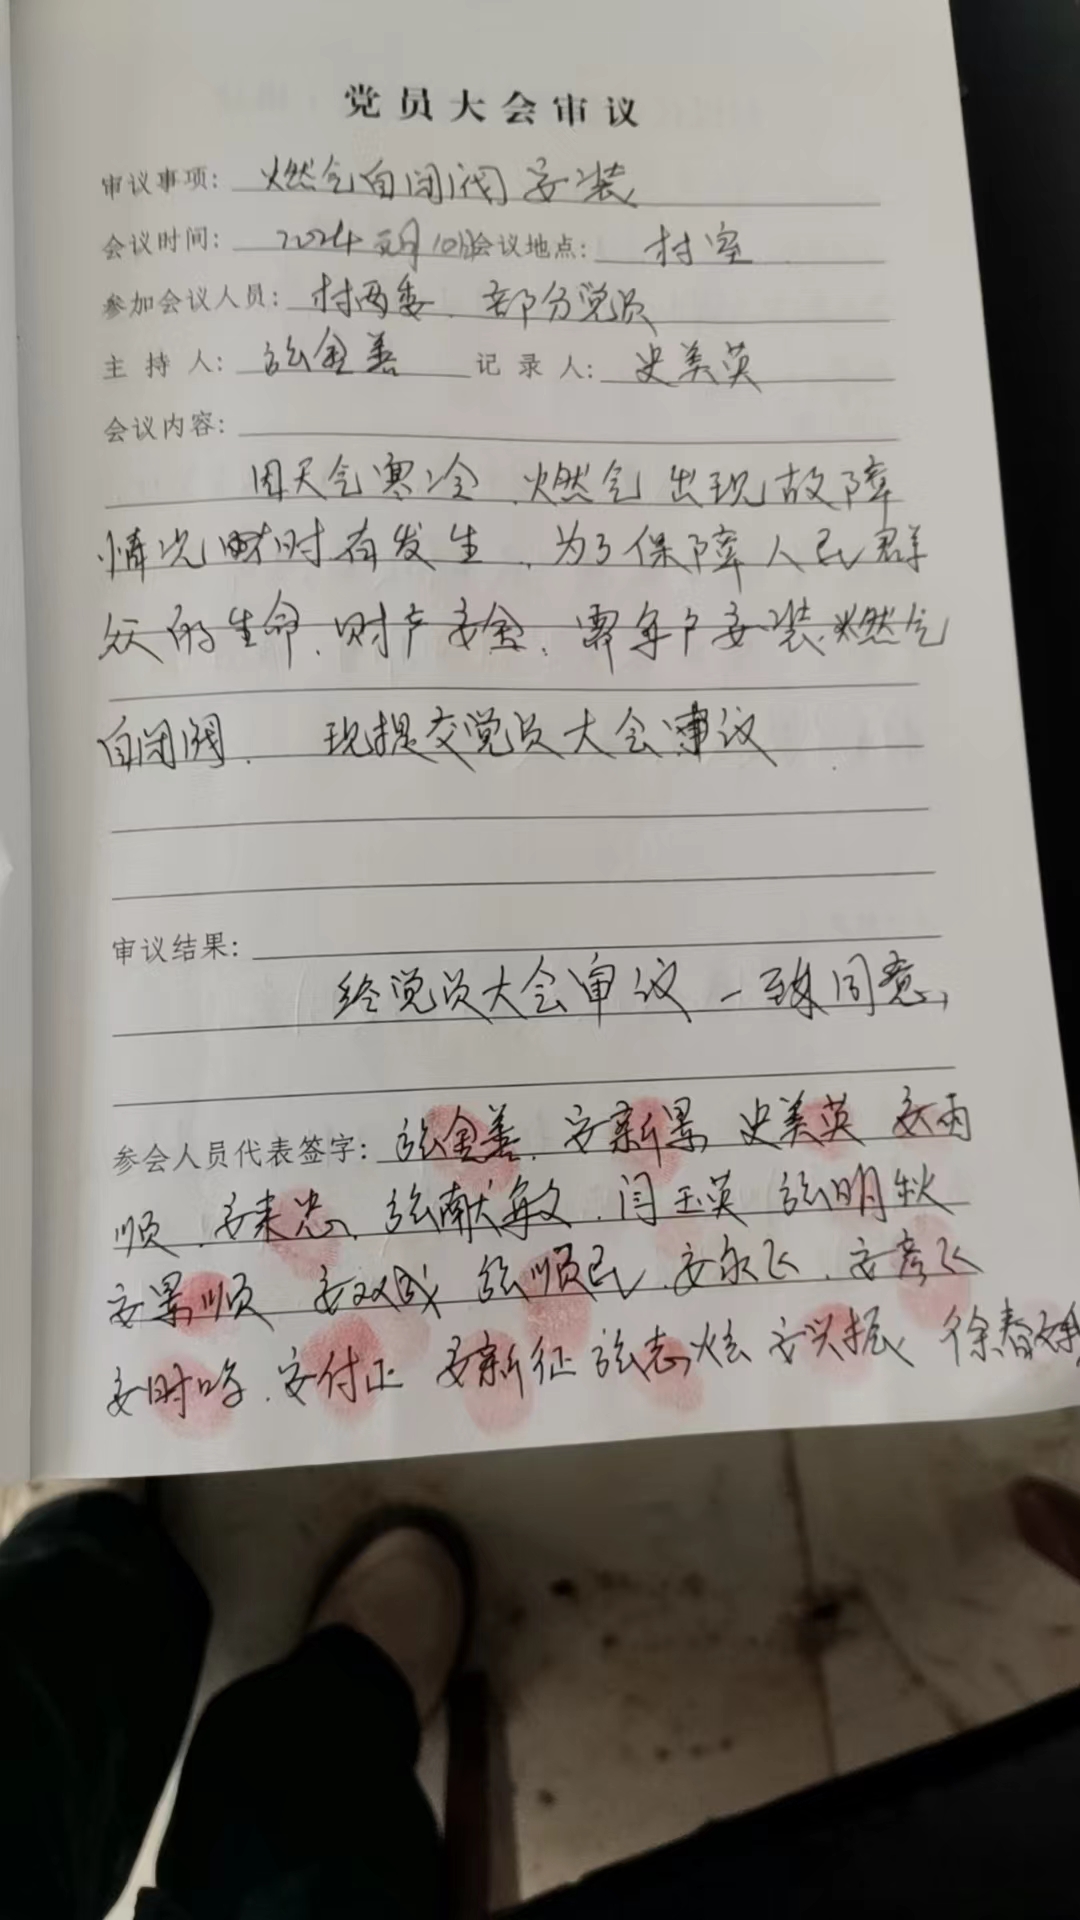 党员大会审议
审议事项: 燃气自闭阀安装
会议时间: 2024元月10日 会议地点: 村室
参加会议人员: 村两委、部分党员
主持人: 张金善 记录人: 史美英
会议内容:
因天气寒冷、燃气出现故障
情况时时有发生、为了保障人民群
众的生命、财产安全、需每户安装燃气
自闭阀. 现提交党员大会审议
审议结果:
经党员大会审议一致同意,
参会人员代表签字: 张金善、安新景 史美英 安丙
顺、安来忠、张献敏、闫玉英 张明秋
安景顺 安双成 张顺民、安永飞、安彦飞
安时 、安付正 安新征 张志炫 安兴振 徐春